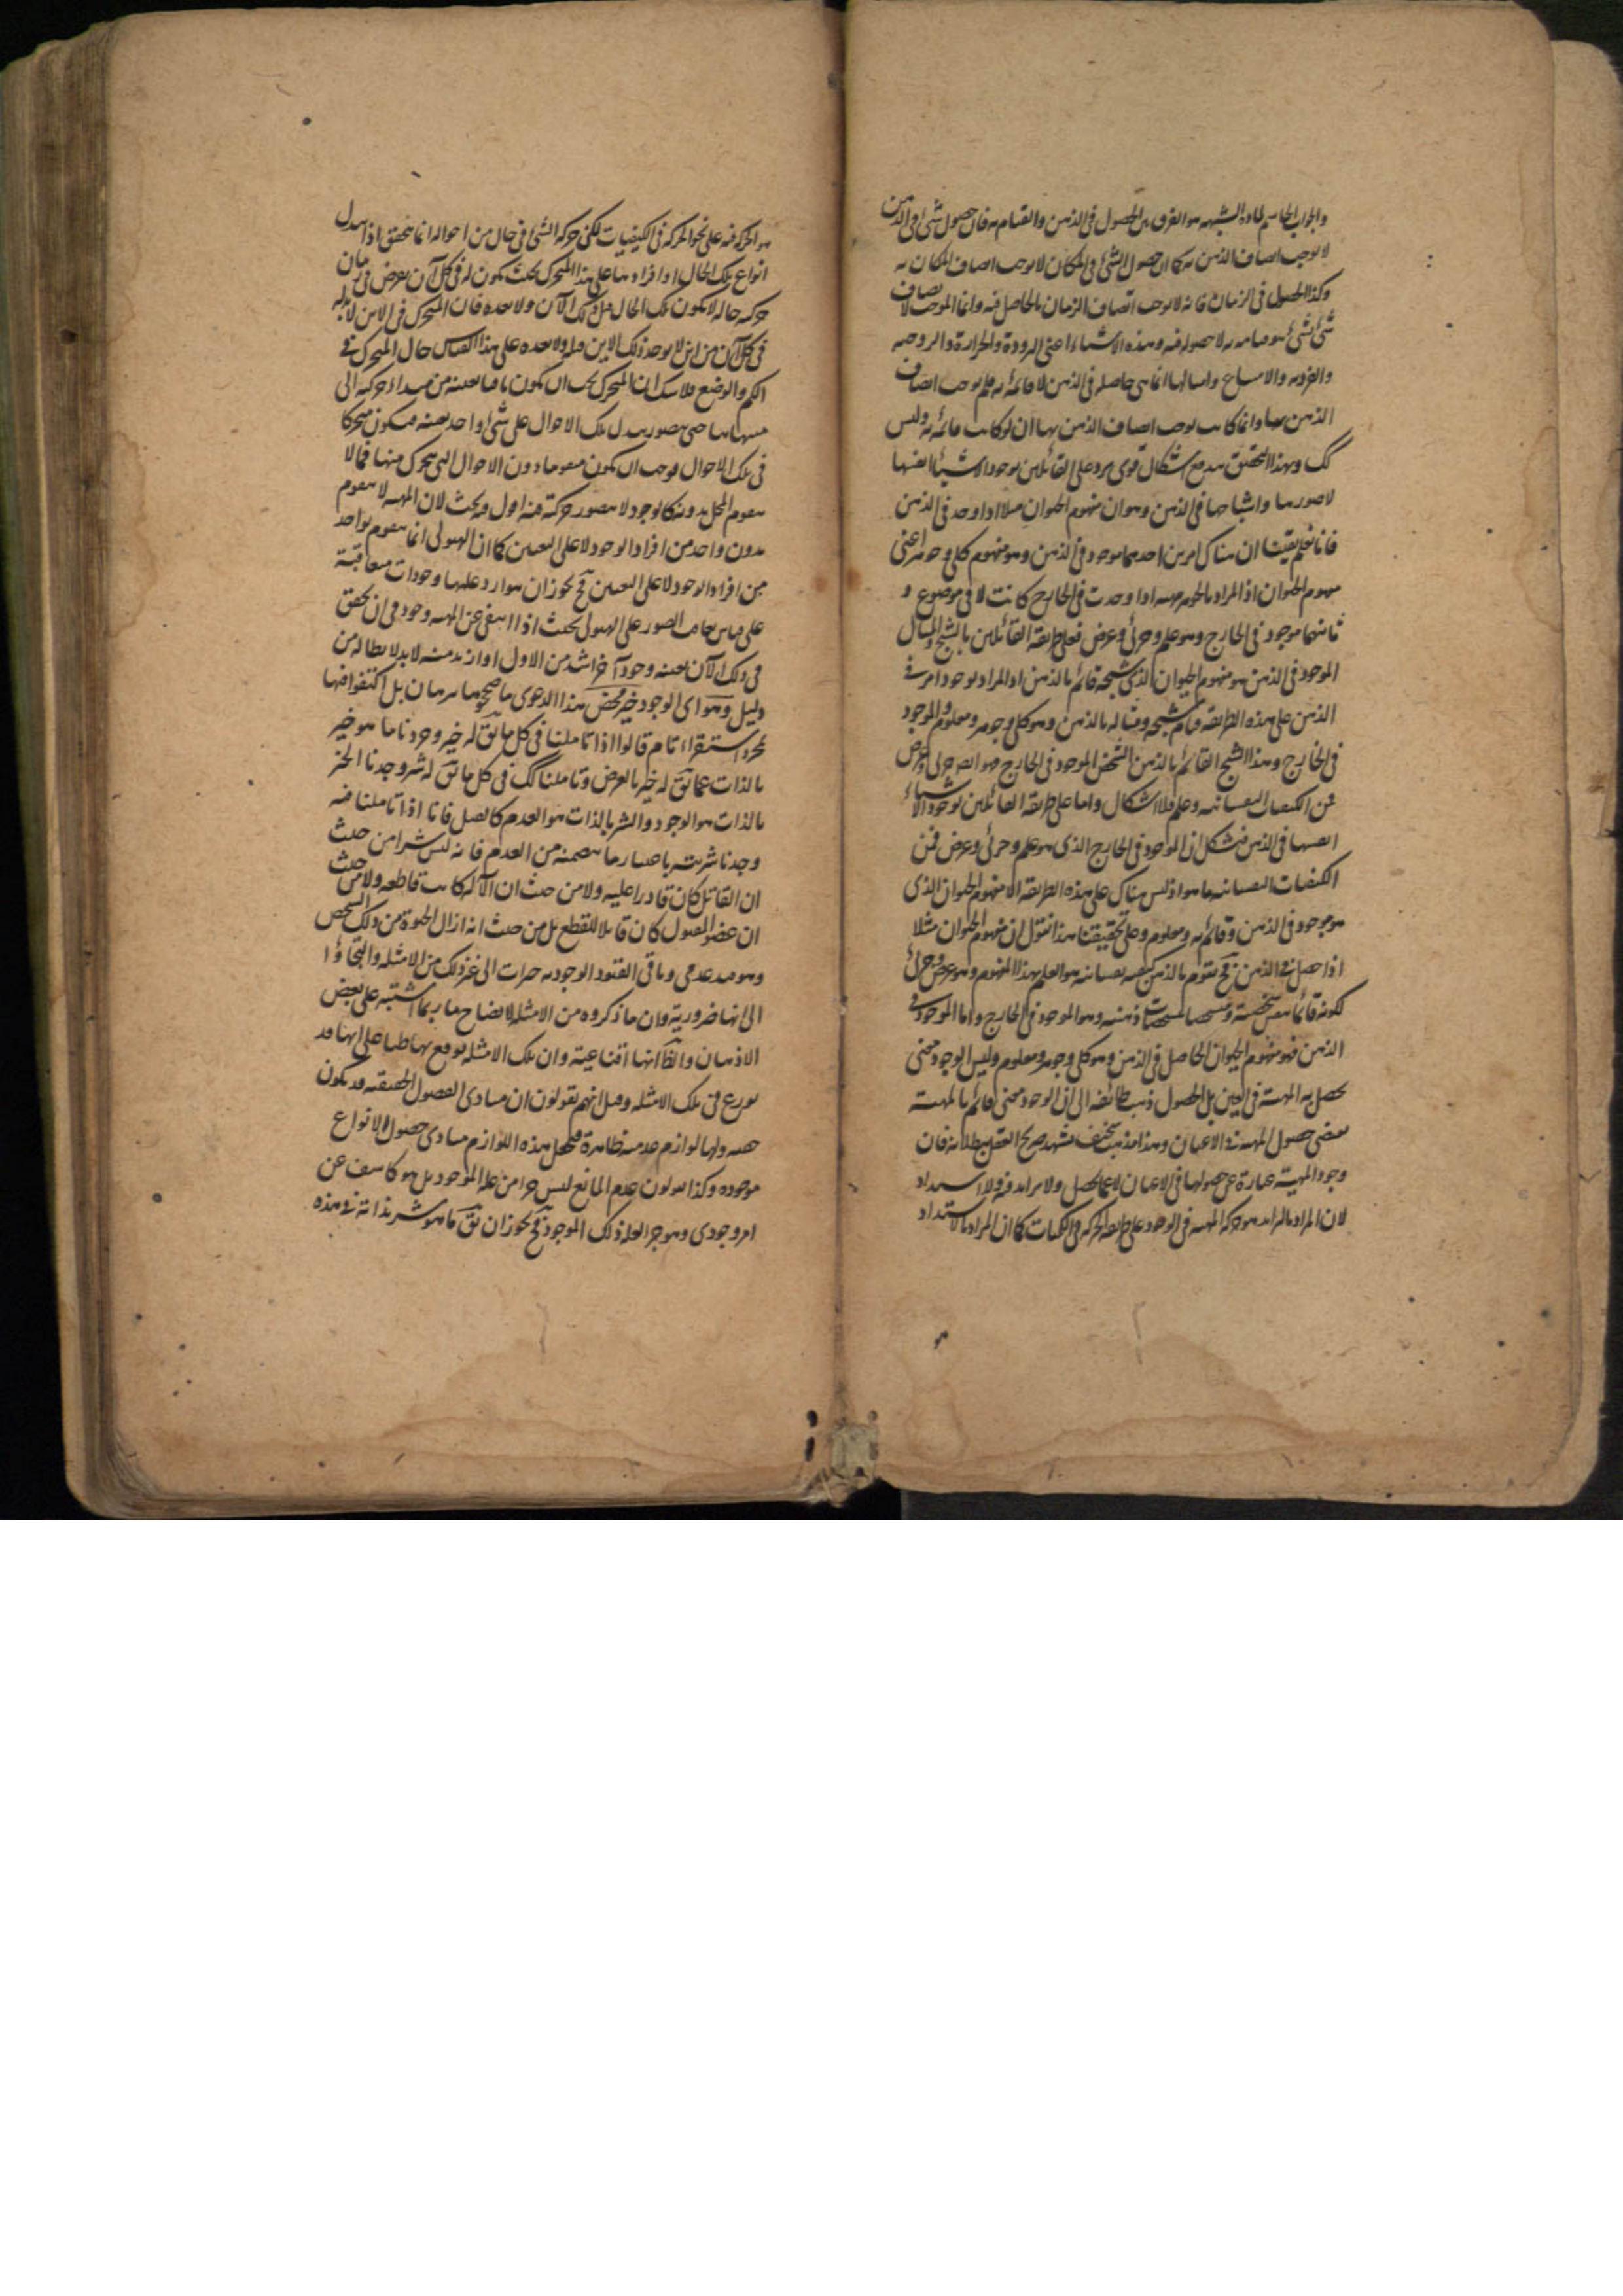 والجواب الحاسم لمادة الشبهة هو الفرق بين الحصول في الذهن والقيام به فان حصول شئ في الذهن
لا يوجب اتصاف الذهن به كما ان حصول الشئ في المكان لا يوجب اتصاف المكان به
وكذا الحصول في الزمان فانه لا يوجب اتصاف الزمان بالحاصل فيه وانما الموجب لاتصاف
شئ بشئ هو قيامه به لا حصوله فيه وهذه الاشياء اعني البرودة والحرارة والزوجية
والفردية والامتناع وامثالها انما هي حاصلة في الذهن لا قائمة به فلم يوجب اتصاف
الذهن بها وانما كانت يوجب اتصاف الذهن بها ان لو كانت قائمة به وليس
كك وبهذا التحقيق يندفع اشكال قوي يرد على القائلين بوجود الاشياء انفسها
لا صورها واشباحها في الذهن وهو ان مفهوم الحيوان مثلا اذا وجد في الذهن
فانا نعلم يقينا ان هناك امرين احدهما موجود في الذهن وهو مفهوم كلي وجوهر اعني
مفهوم الحيوان اذ المراد بالجوهر مهية اذا وجدت في الخارج كانت لا في موضوع و
ثانيهما موجود في الخارج وهو علم وجزئي وعرض فعلى طريقة القائلين بالشبح والمثال
الموجود في الذهن هو مفهوم الحيوان الذي شبحه قائم بالذهن اذ المراد بوجود امر في
الذهن على هذه الطريقة قيام شبحه ومثاله بالذهن وهو كلي وجوهر ومعلوم والموجود
في الخارج وهذا الشبح القائم بالذهن الشخصي الموجود في الخارج هو ايضا جزئي وعرض
من الكيفيات النفسانية وعلم فلا اشكال واما على طريقة القائلين بوجود الاشياء
انفسها في الذهن فيشكل ان الموجود في الخارج الذي هو علم وجزئي وعرض فمن
الكيفيات النفسانية ما هو اذ ليس هناك على هذه الطريقة الا مفهوم الحيوان الذي
هو موجود في الذهن وقائم به ومعلوم وعلى تحقيقنا هذا نقول ان مفهوم الحيوان مثلا
اذا حصل في الذهن فح يقوم بالذهن كيفية نفسانية هو العلم بهذا المفهوم وهو عرض وجزئي
لكونه قائما بنفس شخصية ومتشخصا بتشخصات ذهنية وهو الموجود في الخارج واما الموجود في
الذهن فهو مفهوم الحيوان الحاصل في الذهن وهو كلي وجوهر ومعلوم وليس الوجود معنى
يحصل به المهية في العين بل الحصول ذهب طائفة الى ان الوجود معنى قائم بالمهية
يقتضي حصول المهية في الاعيان وهذا مذهب سخيف يشهد صريح العقل ببطلانه فان
وجود المهية عبارة عن حصولها في الاعيان لا عما يحصل ولا تزايد فيه ولا اشتداد
لان المراد بالتزايد هو حركة المهية في الوجود على طريقة الحركة في الكميات كما ان المراد بالاشتداد
هو الحركة فيه على نحو الحركة في الكيفيات لكن حركة الشئ في حال من احواله انما يتحقق اذا تبدل
انواع تلك الحال او افرادها على هذا المتحرك بحيث يكون له في كل آن يفرض في زمان
حركته حالة لا يكون تلك الحال قبل ذلك الآن ولا بعده فان المتحرك في الاين لا بد له
في كل آن من اين لا يوجد ذلك الاين قبله ولا بعده على هذا القياس حال المتحرك في
الكم والوضع فلا شك ان المتحرك يجب ان يكون باقيا بعينه من مبدأ حركته الى
منتهاها حتى يتصور تبدل تلك الاحوال على شئ واحد بعينه فيكون متحركا
في تلك الاحوال فوجب ان يكون متقوما دون الاحوال التي يتحرك منها فما لا
يتقوم المحل بدونه كالوجود لا يتصور حركته فيه اول فيه بحث لان المهية لا يتقوم
بدون واحد من افراد الوجود لا على التعيين كما ان الهيولى انما يتقوم بواحد
من افراد الوجود لا على التعيين فح يجوز ان يتوارد عليها وجودات متعاقبة
على قياس تعاقب الصور على الهيولى بحيث اذا انتفى عن المهية وجود في آن تحقق
في ذلك الآن بعينه وجود آخر اشد من الاول او ازيد منه لا بد لابطاله من
دليل وهو اي الوجود خير محض هذا الدعوى ما صححوها ببرهان بل اكتفوا فيها
بمجرد استقراء تام قالوا اذا تأملنا في كل ما يق له خير وجدنا ما هو خير
بالذات عما يق له خير بالعرض وتأملنا كك في كل ما يق له شر وجدنا الخير
بالذات هو الوجود والشر بالذات هو العدم كالقتل فانا اذا تأملنا فيه
وجدنا شريته باعتبار ما يتضمنه من العدم فانه ليس شرا من حيث
ان القاتل كان قادرا عليه ولا من حيث ان الآلة كانت قاطعة ولا من حيث
ان عضو المقتول كان قابلا للقطع بل من حيث انه ازال الحيوة من ذلك الشخص
وهو قيد عدمي وباقي القيود الوجودية خيرات الى غير ذلك من الامثلة والتجاؤا
الى انها ضرورية وان ما ذكروه من الامثلة لايضاح ما ربما اشتبه على بعض
الاذهان والظ انها اقناعية وان تلك الامثلة توقع بها ظنا على انها قد
نوزع في تلك الامثلة وقيل انهم يقولون ان مبادي الفصول الحقيقية قد يكون
خفية ولها لوازم عدمية ظاهرة فيجعل هذه اللوازم مبادي فصول الانواع
موجودة وكذا يقولون عدم المانع ليس جزا من علة الموجود بل هو كاشف عن
امر وجودي وهو جزء لعلة ذلك الموجود فح يجوز ان يق ما هو شر بذاته في هذه